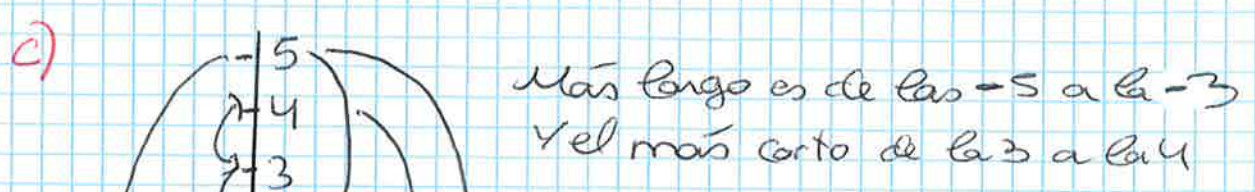 c)
5
4
3
Más largo es de las -5 a la -3
Y el más corto de la 3 a la 4